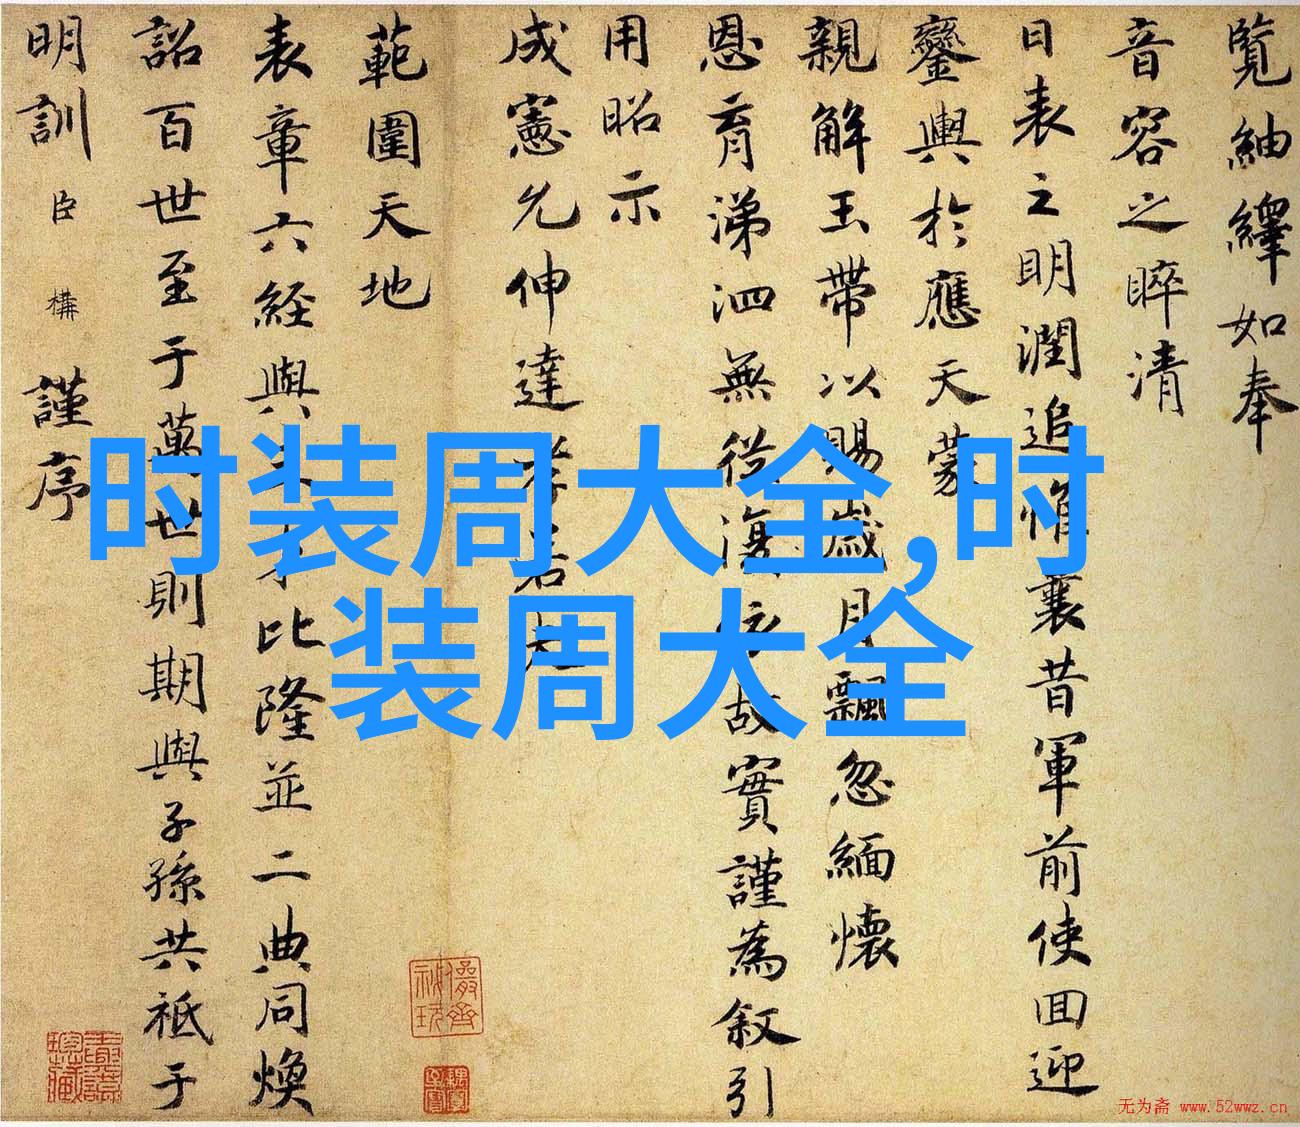 覽紬繹如奉
音容之睟清
日表之明潤追惟曩昔軍前使回迎
鑾輿於應天蒙
親解玉帶以賜歲月飄忽緬懷
恩育涕泗無從復依故實謹為叙引
用昭示
成憲允伸達孝若夫
範圍天地
表章六経與比隆並二典同煥
詔百世至于萬世則期與子孫共祗于
明訓臣構謹序
时装周大全,时
装周大全
无为斋 www.52wwz.cn